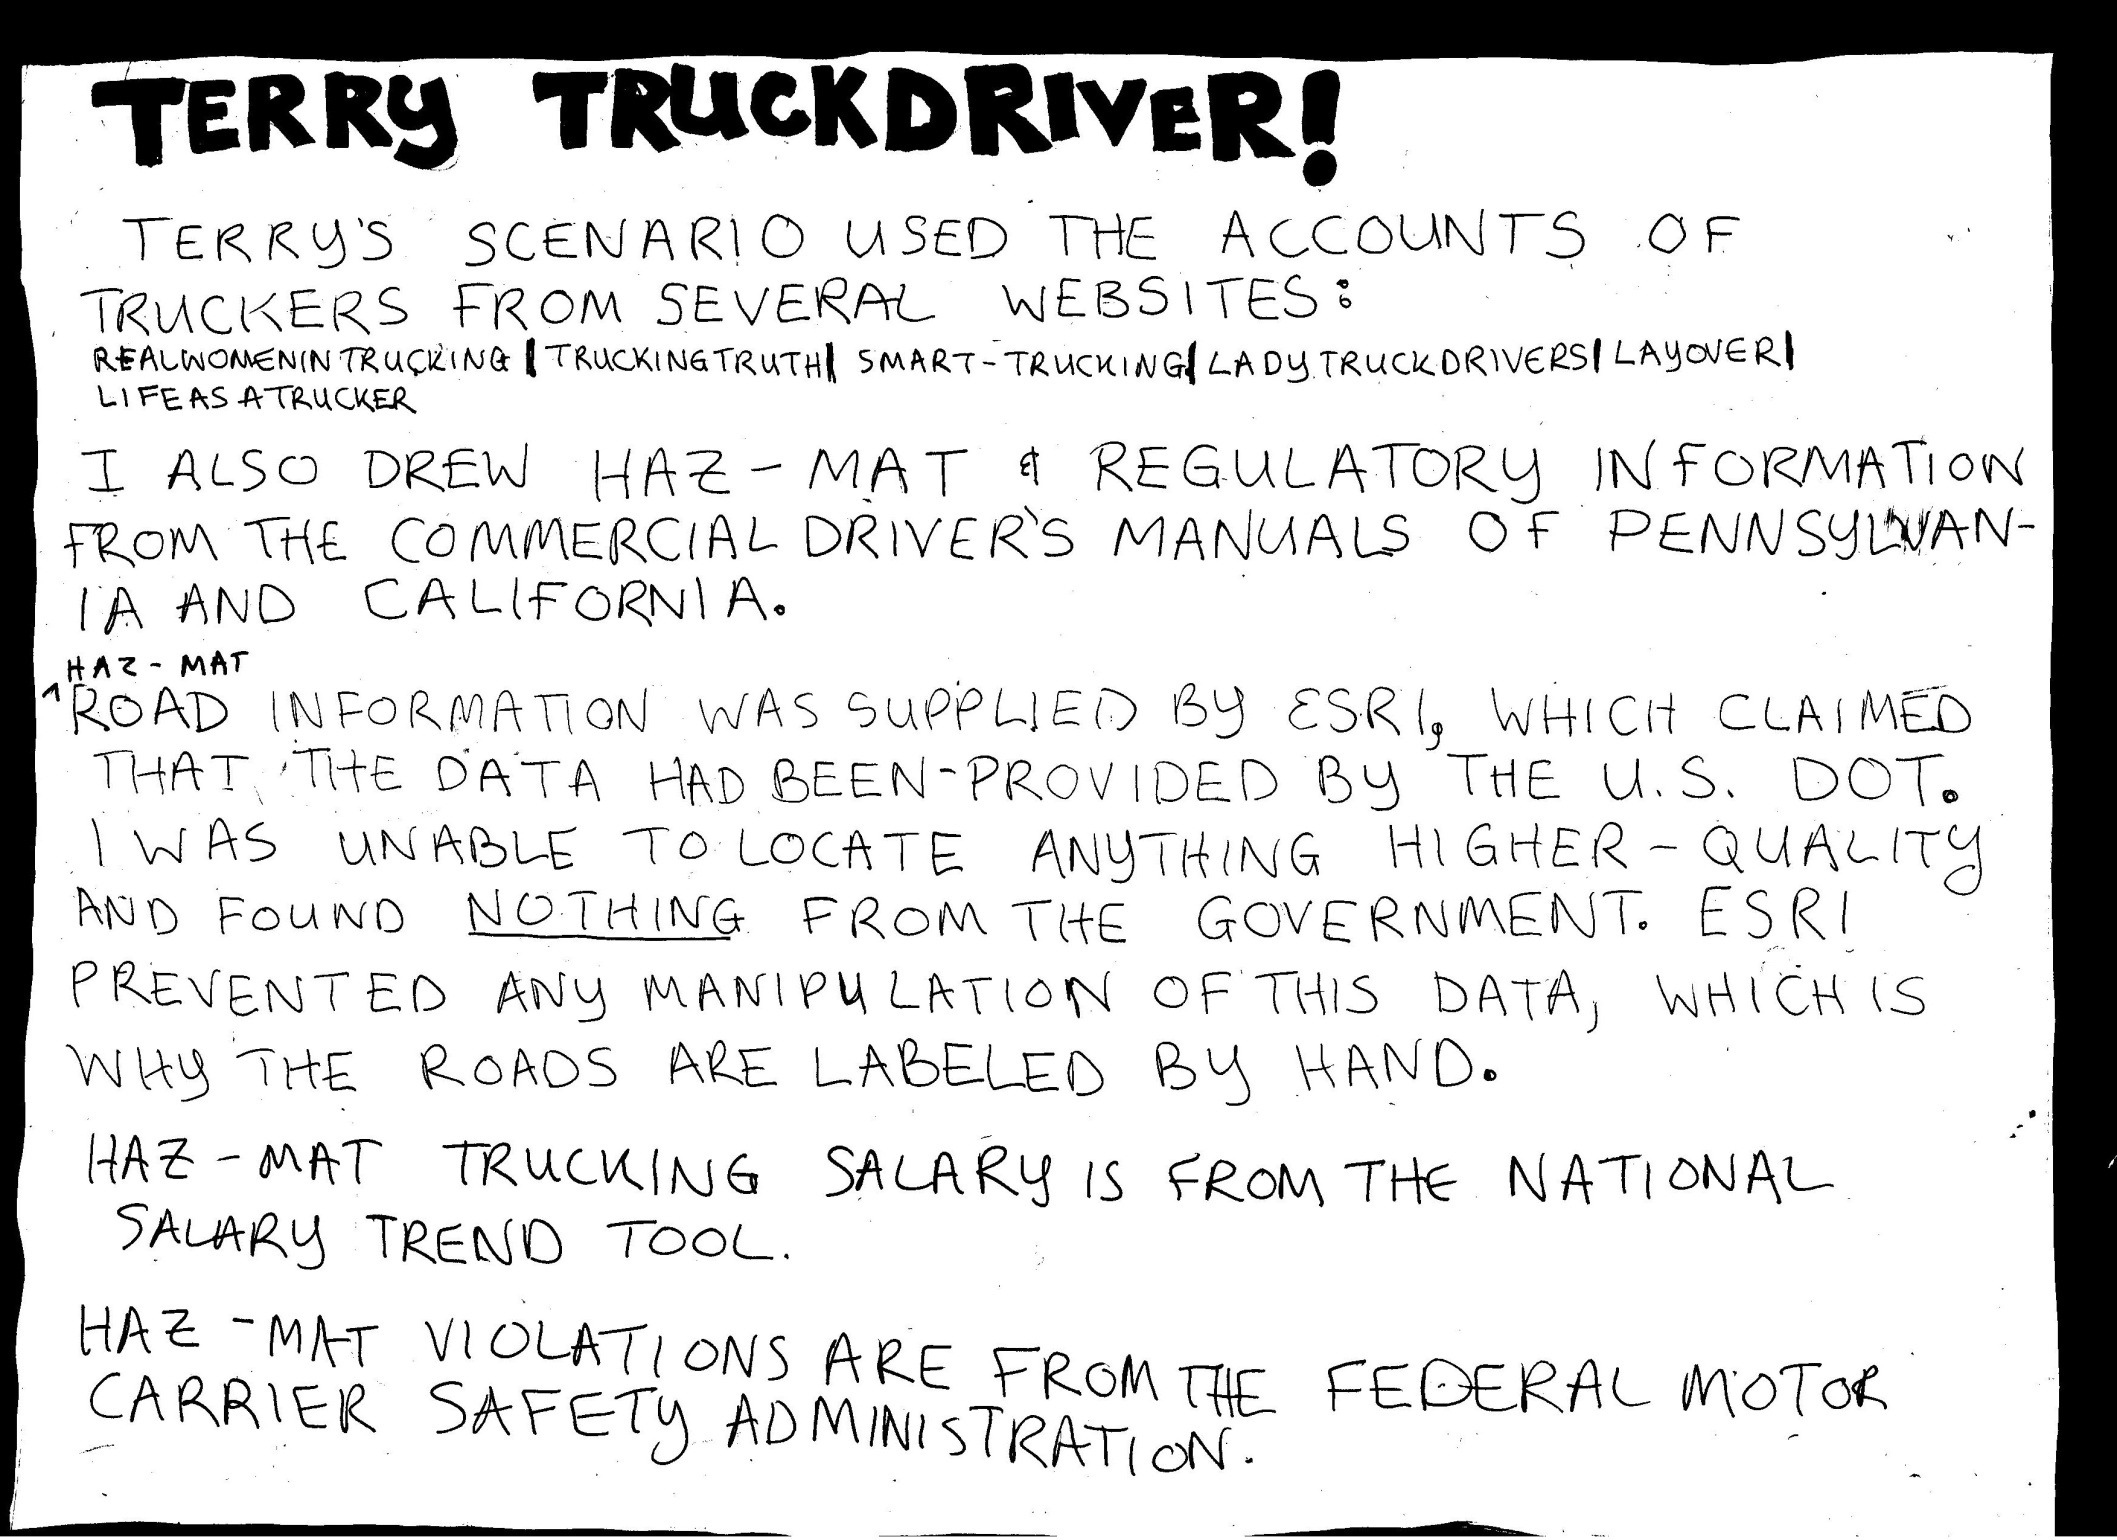 TERRY TRUCKDRIVER!
TERRY'S SCENARIO USED THE ACCOUNTS OF
TRUCKERS FROM SEVERAL WEBSITES:
REALWOMENINTRUCKING | TRUCKINGTRUTH | SMART-TRUCKING | LADYTRUCKDRIVERS | LAYOVER |
LIFEASATRUCKER
I ALSO DREW HAZ-MAT & REGULATORY INFORMATION
FROM THE COMMERCIAL DRIVER'S MANUALS OF PENNSYLVAN-
IA AND CALIFORNIA.
HAZ-MAT
^ROAD INFORMATION WAS SUPPLIED BY ESRI, WHICH CLAIMED
THAT THE DATA HAD BEEN-PROVIDED BY THE U.S. DOT.
I WAS UNABLE TO LOCATE ANYTHING HIGHER-QUALITY
AND FOUND NOTHING FROM THE GOVERNMENT. ESRI
PREVENTED ANY MANIPULATION OF THIS DATA, WHICH IS
WHY THE ROADS ARE LABELED BY HAND.
HAZ-MAT TRUCKING SALARY IS FROM THE NATIONAL
SALARY TREND TOOL.
HAZ-MAT VIOLATIONS ARE FROM THE FEDERAL MOTOR
CARRIER SAFETY ADMINISTRATION.